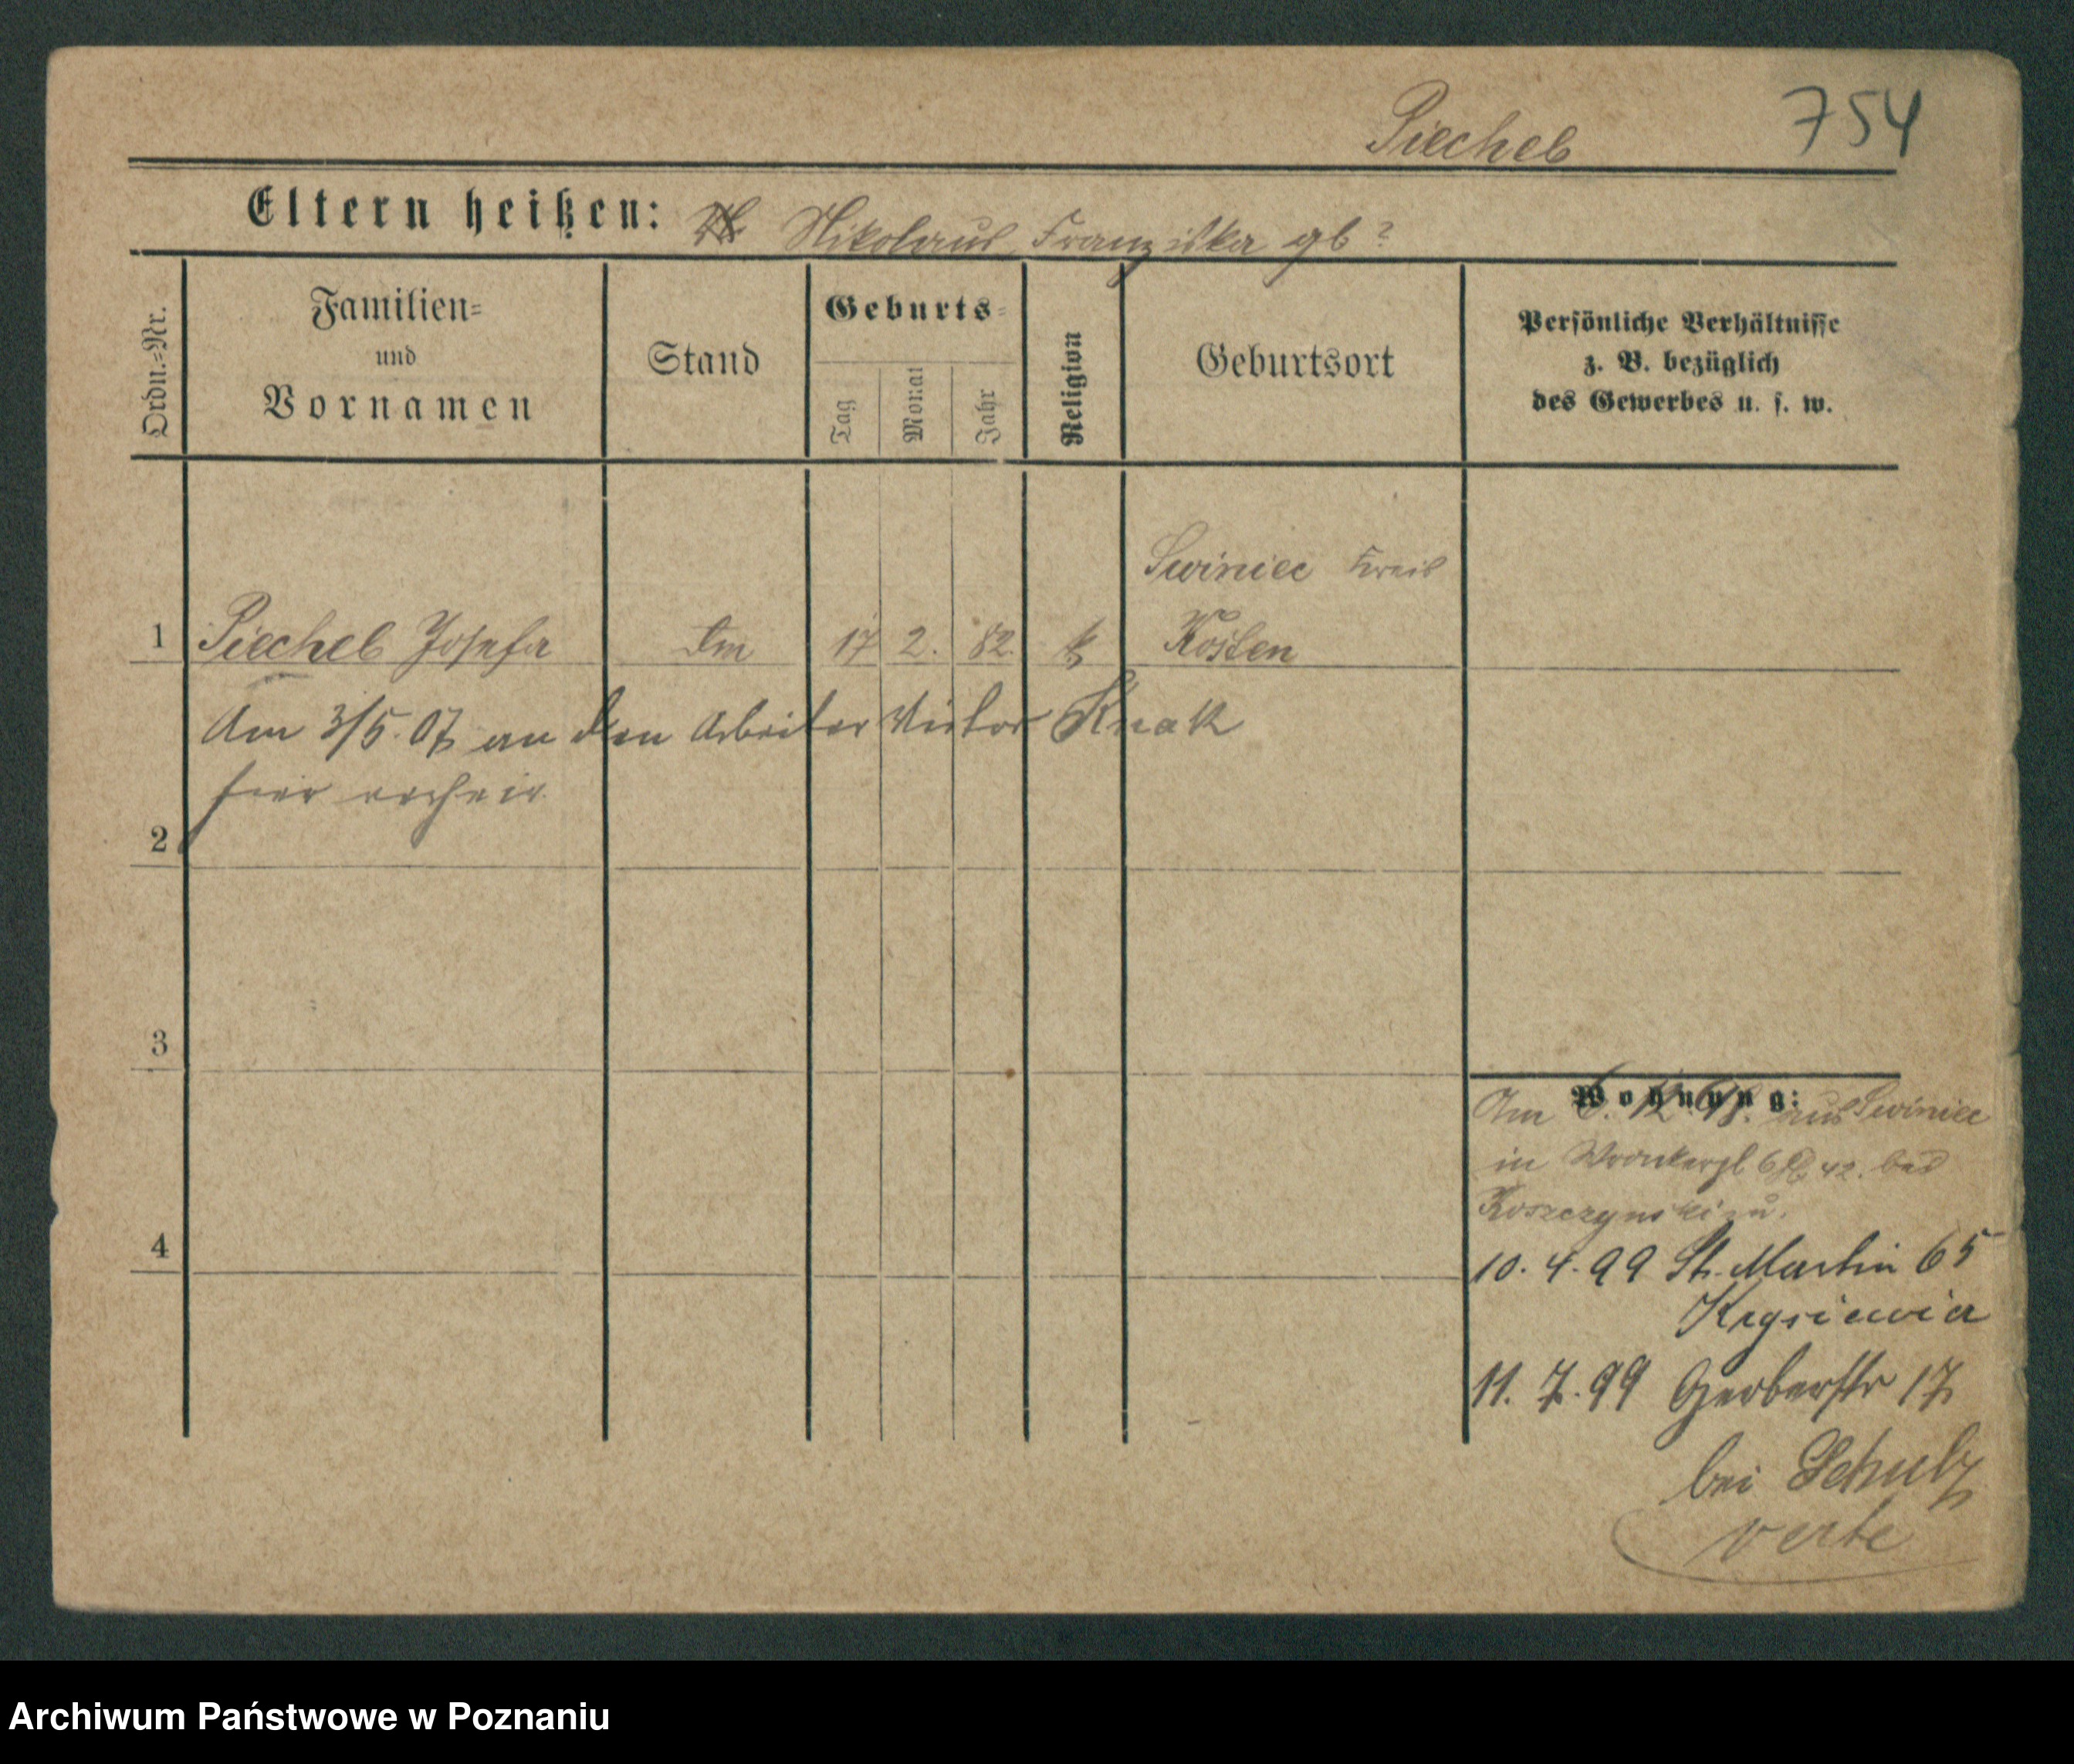 Piechel 754
Eltern heißen: Nikolaus Franziska gb?
Ordn.=Nr.
Familien=
und
Vornamen
Stand
Geburts=
Tag
Monat
Jahr
Religion
Geburtsort
Persönliche Verhältnisse
z. B. bezüglich
des Gewerbes u. s. w.
Swiniec Kreis
1 Piechel Josefa Dm 17 2. 82. k Kosten
Am 3/5. 07 an den Arbeiter Victor Knak
hier verheir.
2
3
Wohnung:
Am 6. 12 98. aus Swiniec
in 42. bei
Koszczynski zu.
4
10. 4. 99 St. Martin 65
11. 7. 99 Gerberstr 17
bei Schulz
verte
Archiwum Państwowe w Poznaniu